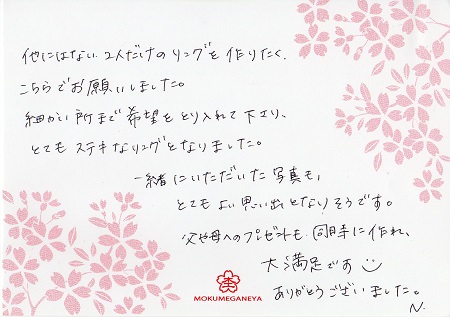 他にはない、2人だけのリングを作りたく、
こちらでお願いしました。
細かい所まで希望をとり入れて下さり、
とてもステキなリングとなりました。
一緒にいただいた写真も、
とてもよい思い出となりそうです。
父や母へのプレゼントも同時に作れ、
大満足です
ありがとうございました。
N.
MOKUMEGANEYA